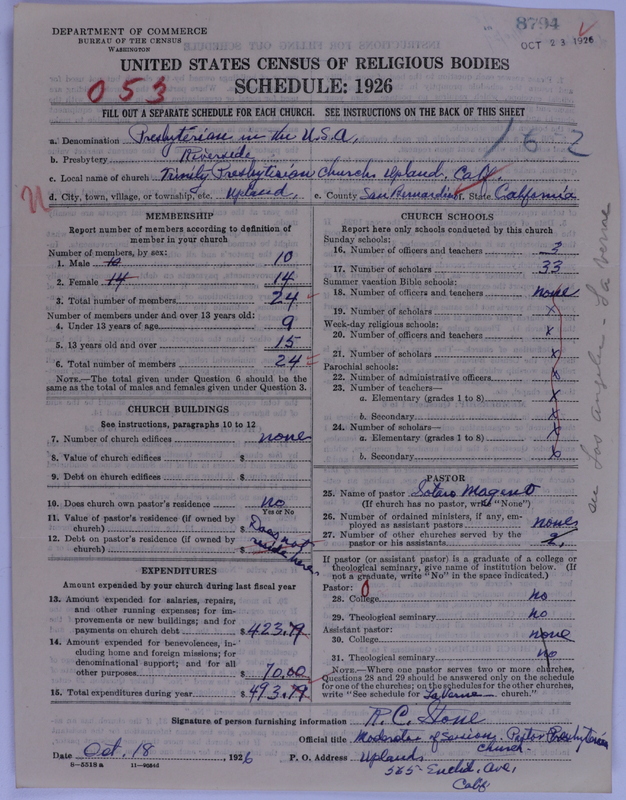 DEPARTMENT OF COMMERCE
BUREAU OF THE CENSUS
WASHINGTON
8794
OCT 23 1926
UNITED STATES CENSUS OF RELIGIOUS BODIES
SCHEDULE: 1926
053
FILL OUT A SEPARATE SCHEDULE FOR EACH CHURCH. SEE INSTRUCTIONS ON THE BACK OF THIS SHEET
a. Denomination Presbyterian in the U.S.A.
162
b. Presbytery Riverside
c. Local name of church Trinity Presbyterian Church, Upland, Calif
d. City, town, village, or township, etc. Upland, e. County San Bernardino f. State California
MEMBERSHIP
Report number of members according to definition of member in your church
Number of members, by sex:
1. Male 10 10
2. Female 14 14
3. Total number of members 24
Number of members under and over 13 years old:
4. Under 13 years of age 9
5. 13 years old and over 15
6. Total number of members 24
NOTE.—The total given under Question 6 should be the same as the total of males and females given under Question 3.
CHURCH BUILDINGS
See instructions, paragraphs 10 to 12
7. Number of church edifices none
8. Value of church edifices $
9. Debt on church edifices $
10. Does church own pastor's residence no
Yes or No
11. Value of pastor's residence (if owned by church) $ Does not
12. Debt on pastor's residence (if owned by church) $ reside here
EXPENDITURES
Amount expended by your church during last fiscal year
13. Amount expended for salaries, repairs, and other running expenses; for improvements or new buildings; and for payments on church debt $ 423.79
14. Amount expended for benevolences, including home and foreign missions; for denominational support; and for all other purposes $ 70.00
15. Total expenditures during year $ 493.79
CHURCH SCHOOLS
Report here only schools conducted by this church
Sunday schools:
16. Number of officers and teachers 3
17. Number of scholars 33
Summer vacation Bible schools:
18. Number of officers and teachers none
19. Number of scholars x
Week-day religious schools:
20. Number of officers and teachers x
21. Number of scholars x
Parochial schools:
22. Number of administrative officers x
23. Number of teachers—
a. Elementary (grades 1 to 8) x
b. Secondary x
24. Number of scholars—
a. Elementary (grades 1 to 8) x
b. Secondary x
see Los Angeles - La Verne
PASTOR
25. Name of pastor
(If church has no pastor, write "None")
26. Number of ordained ministers, if any, employed as assistant pastors none
27. Number of other churches served by the pastor or his assistants 2
If pastor (or assistant pastor) is a graduate of a college or theological seminary, give name of institution below. (If not a graduate, write "No" in the space indicated.)
Pastor: 0
28. College no
29. Theological seminary no
Assistant pastor:
30. College none
31. Theological seminary no
NOTE.—Where one pastor serves two or more churches, Questions 28 and 29 should be answered only on the schedule for one of the churches; on the schedules for the other churches, write "See schedule for LaVerne church."
Signature of person furnishing information R. C. Stone
Official title Moderator of Session. Pastor Presbyterian Church
Date Oct. 18, 1926 P. O. Address Upland
565 Euclid Ave,
Calif
8-5518a